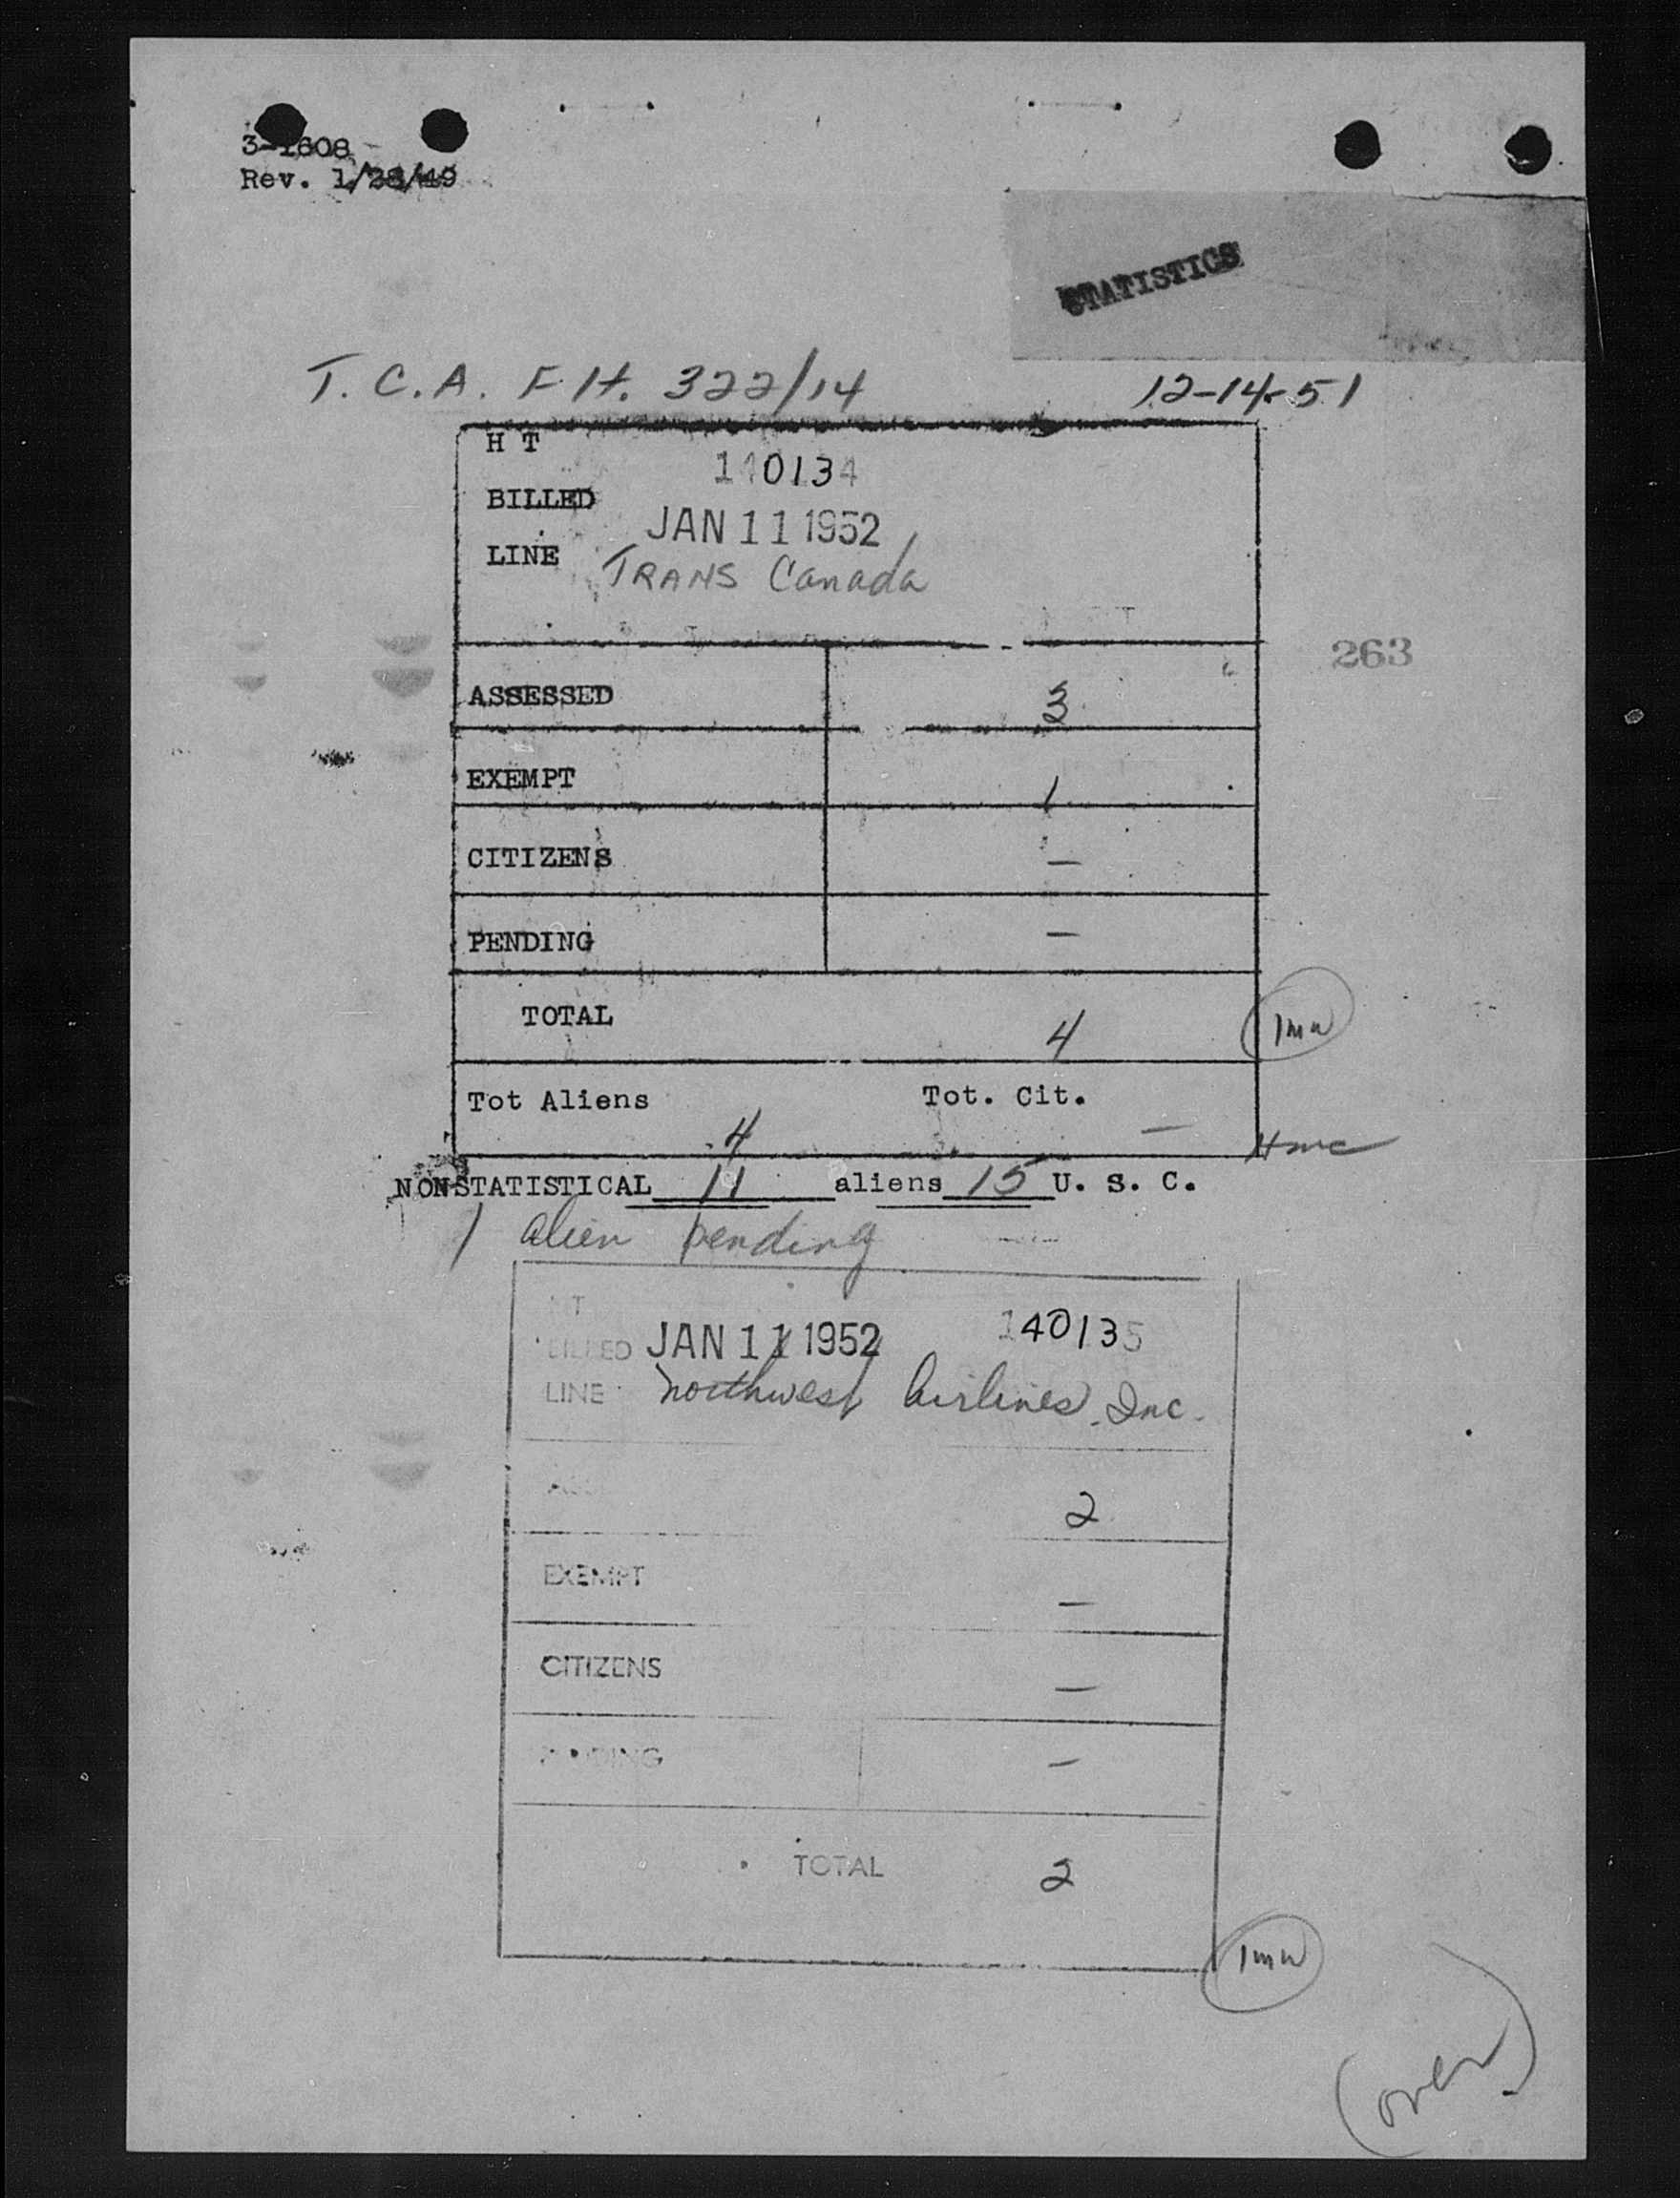 3-1608
Rev. 1/28/49
STATISTICS
T.C.A. Flt. 322/14 12-14-51
H T 140134
BILLED JAN 11 1952
LINE TRANS Canada
263
ASSESSED 3
EXEMPT 1
CITIZENS —
PENDING —
TOTAL 4
Tot Aliens 4 Tot. Cit. —
NONSTATISTICAL 11 aliens 15 U. S. C.
1 alien pending
HT 140135
BILLED JAN 11 1952
LINE Northwest Airlines, Inc.
2
EXEMPT —
CITIZENS —
PENDING —
TOTAL 2
(over)